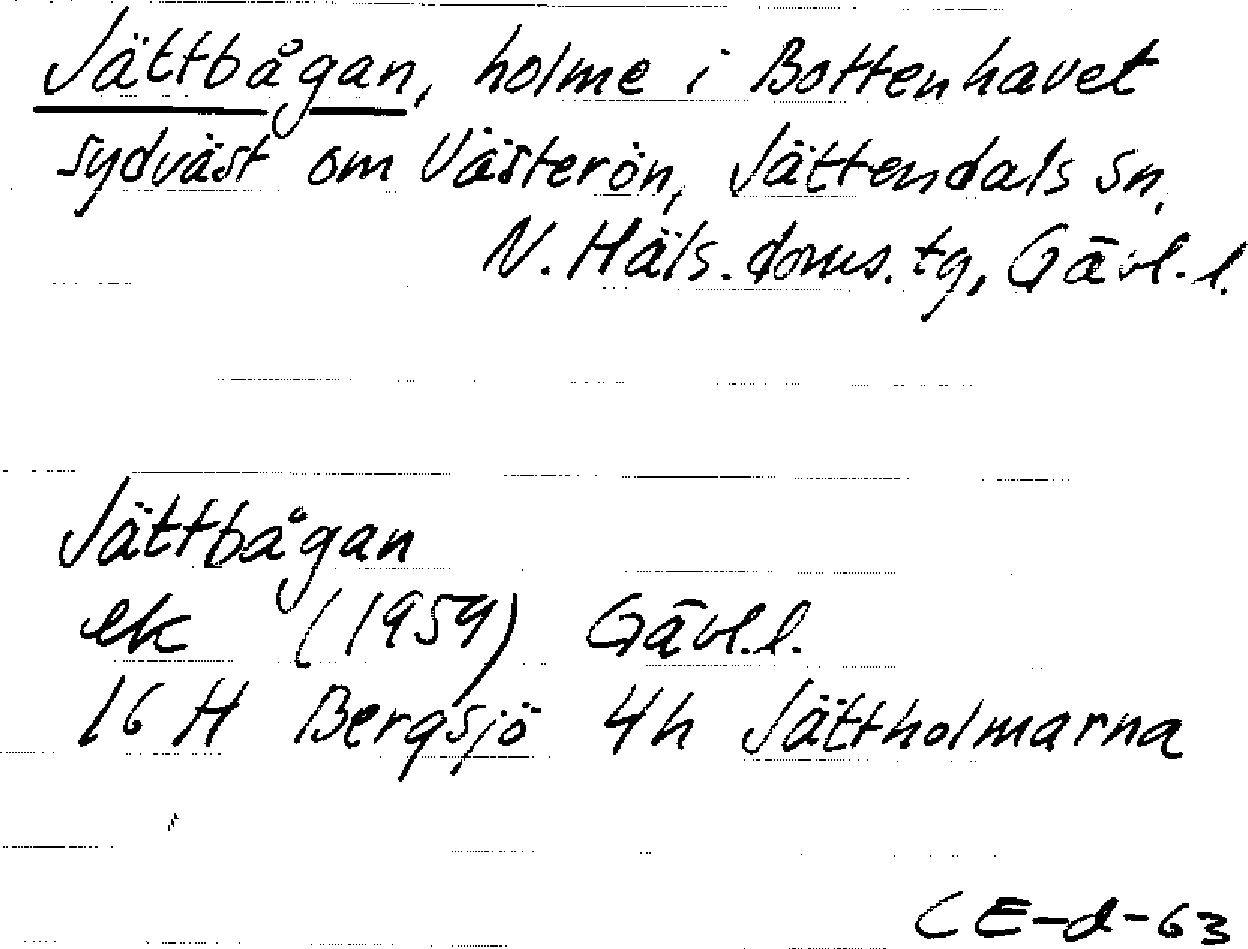 Jättbågan, holme i Bottenhavet
sydväst om Västerön, Jättendals sn,
N. Häls. doms. tg, Gävl. l.
Jättbågan
ek (1959) Gävl. l.
16 H Bergsjö 4h Jättholmarna
CE-d-63